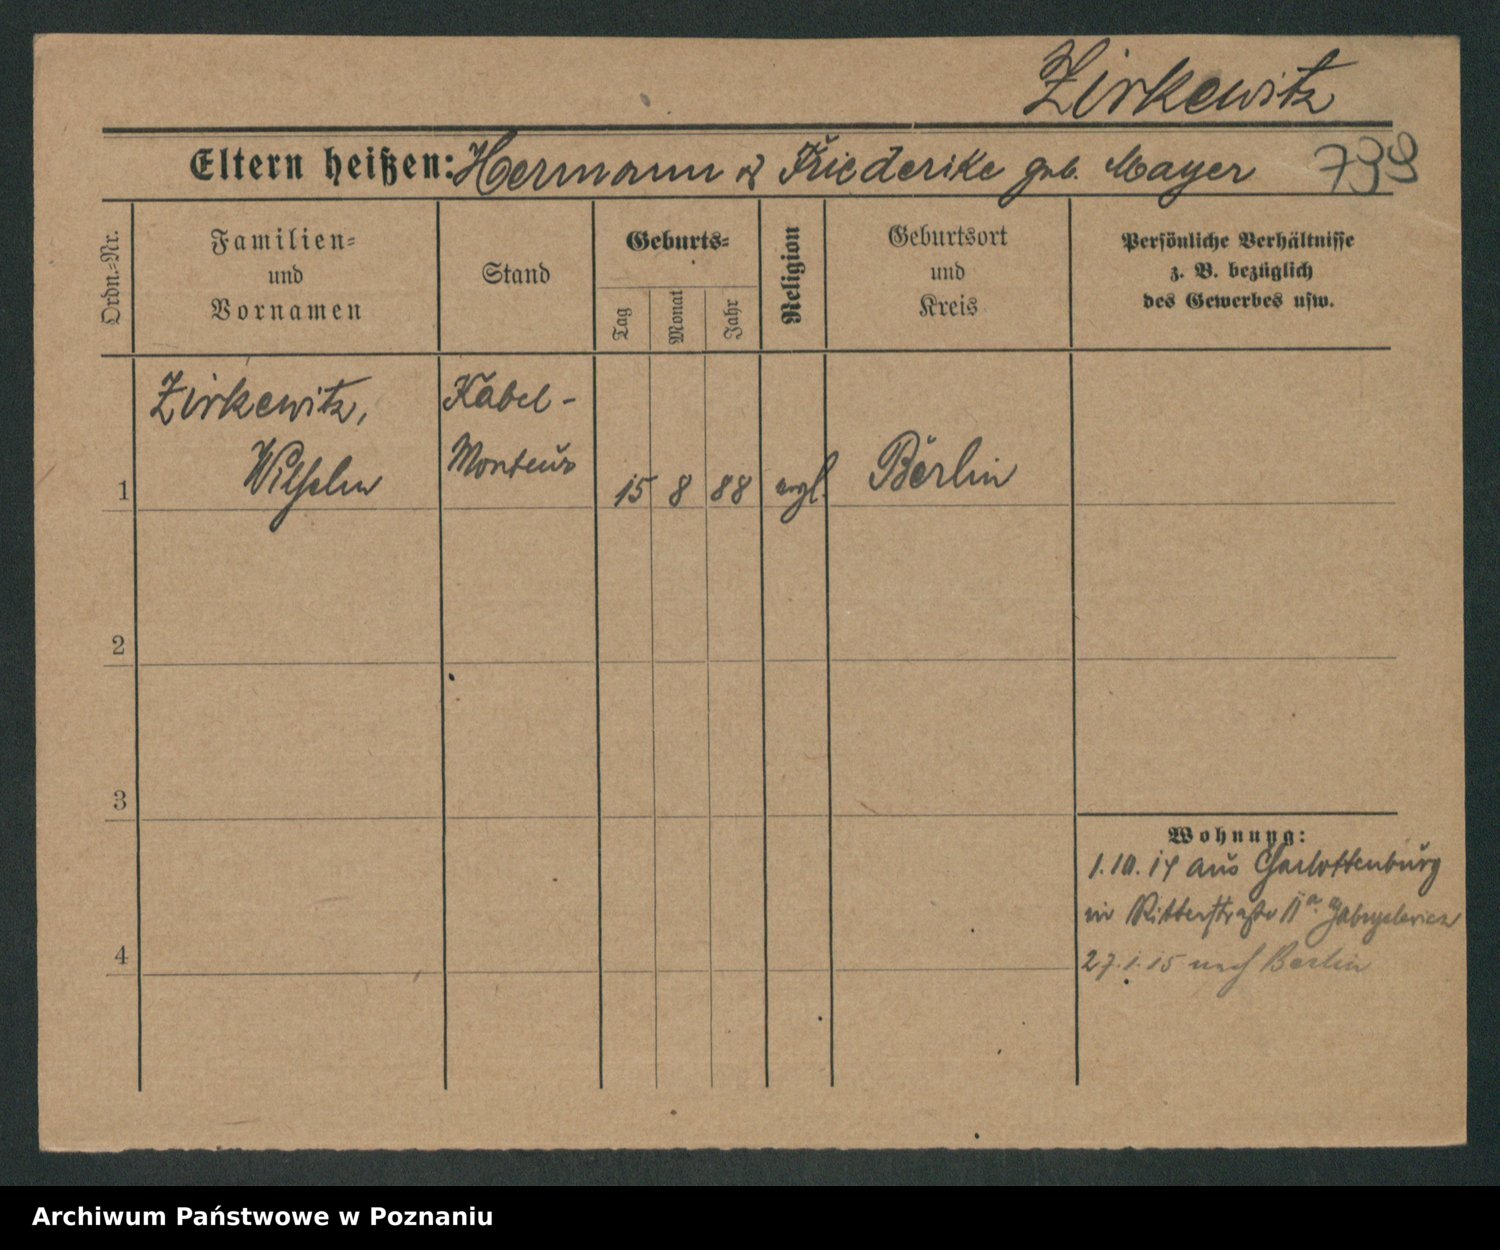 Zirkewitz
Eltern heißen: Hermann & Friederike geb. Mayer
Ordn.-Nr.
Familien-
und
Vornamen
Stand
Geburts-
Tag
Monat
Jahr
Religion
Geburtsort
und
Kreis
Persönliche Verhältnisse
z. B. bezüglich
des Gewerbes usw.
1
Zirkewitz,
Wilhelm
Kabel-
Monteur
15
8
88
evgl.
Berlin
2
3
4
Wohnung:
1.10.14 aus Charlottenburg
in Ritterstraße
27.1.15 nach Berlin
Archiwum Państwowe w Poznaniu